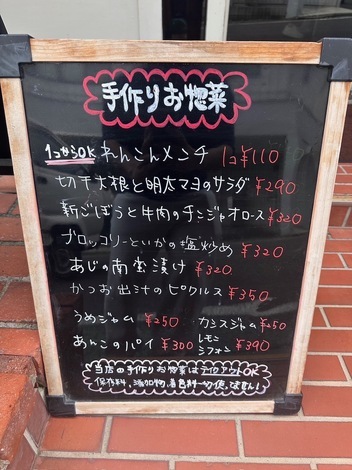 手作りお惣菜
1コからOK れんこんメンチ 1コ¥110
切干大根と明太マヨのサラダ ¥290
新ごぼうと牛肉のチンジャオロース ¥320
ブロッコリーといかの塩炒め ¥320
あじの南蛮漬け ¥320
かつお出汁のピクルス ¥350
うめジャム ¥250 カシスジャム ¥250
あんこのパイ ¥300 レモンシフォン ¥390
当店の手作りお惣菜はテイクアウトOK
保存料、添加物、着色料一切使ってません!